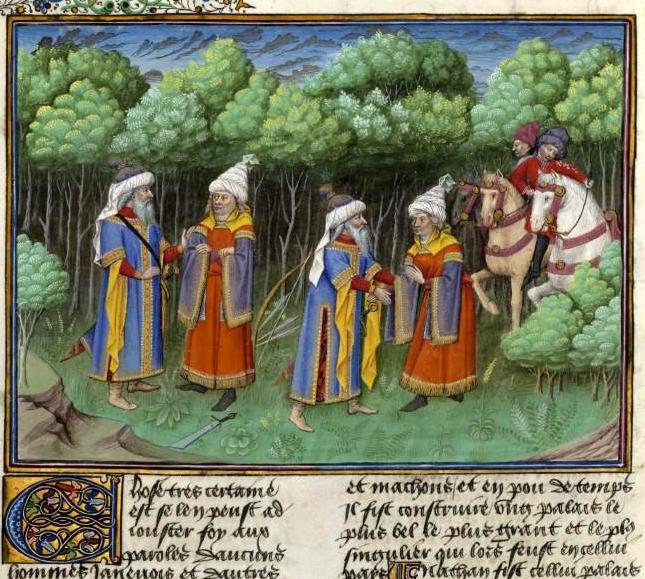 Chose tres certaine
est se len peust ad
iouster foy aux
paroles daucuns
hommes Janeuois et dautres
et machons et en pou de temps
Il fist construire vng palais le
plus bel le plus grant et le plus
singulier qui lors feust en cellui
pays Nathan fist cellui palais